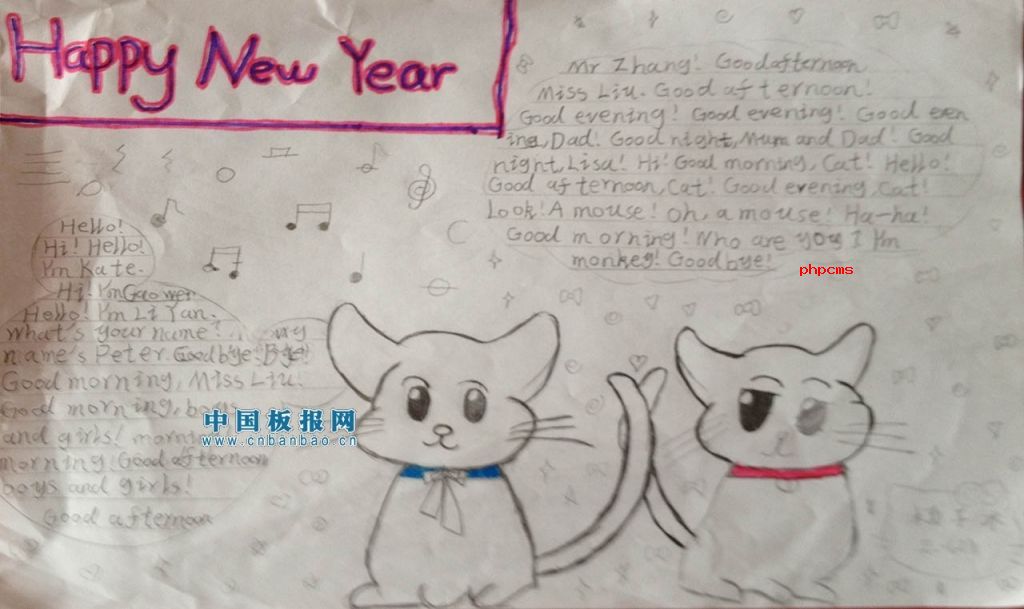 Happy New Year
Mr Zhang! Good afternoon
Miss Liu. Good afternoon!
Good evening! Good evening! Good even
ing, Dad! Good night, Mum and Dad! Good
night, Lisa! Hi! Good morning, Cat! Hello!
Good afternoon, Cat! Good evening, Cat!
Look! A mouse! Oh, a mouse! Ha-ha!
Good morning! Who are you I I'm
monkey! Goodbye!
phpcms
Hello!
Hi! Hello!
I'm Kate.
Hi! I'm Gao wei
Hello! I'm Li Yan.
what's your name? my
name's Peter. Goodbye. Bye!
Good morning, Miss Liu.
Good morning, boys
and girls! morning
morning! Good afternoon
boys and girls!
Good afternoon
中国板报网
www.cnbanbao.cn